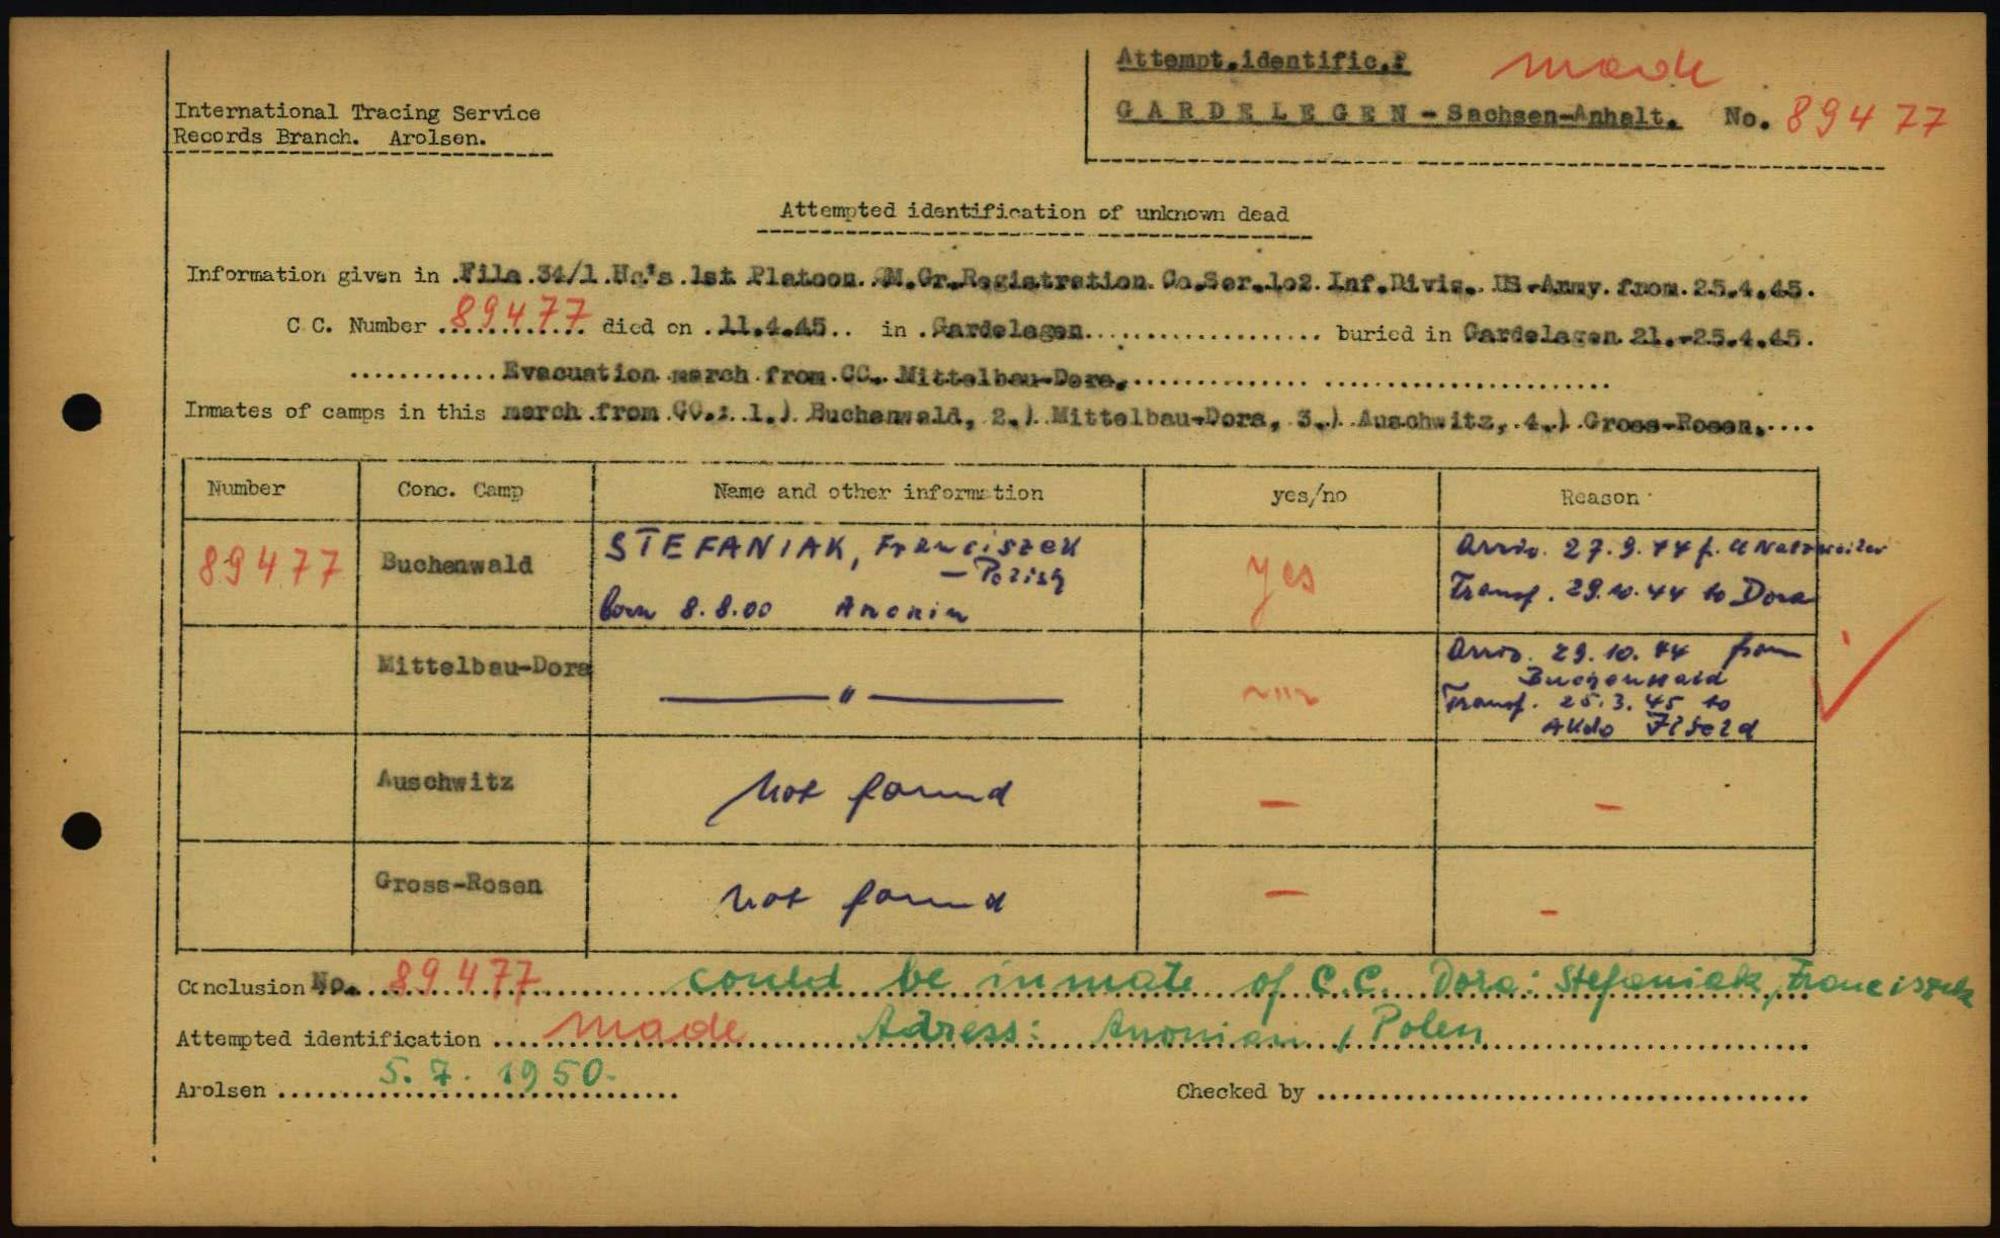 Attempt.identific.: made
International Tracing Service
Records Branch. Arolsen.
GARDELEGEN - Sachsen-Anhalt. No. 89477
Attempted identification of unknown dead
Information given in File 34/1 Hq's 1st Platoon QM.Gr.Registration Co.Ser.102 Inf.Divis. US-Army from 25.4.45.
C C. Number 89477 died on 11.4.45 in Gardelegen buried in Gardelegen 21.-25.4.45.
Evacuation march from CC. Mittelbau-Dora,
Inmates of camps in this march from CC.: 1.) Buchenwald, 2.) Mittelbau-Dora, 3.) Auschwitz, 4.) Gross-Rosen.
Number Conc. Camp Name and other information yes/no Reason
89477 Buchenwald STEFANIAK, Franciszek - Polish yes Arriv. 27.9.44 f. Natzweiler
born 8.8.00 Anonin Transf. 29.10.44 to Dora
Mittelbau-Dora — " — — " — Arriv. 29.10.44 from
Buchenwald
Transf. 25.3.45 to
AKdo Ilfeld
Auschwitz not found — —
Gross-Rosen not found — —
Conclusion No. 89477 could be inmate of C.C. Dora: Stefaniak, Franciszek
Attempted identification made Adress: Anonian, Polen
Arolsen 5.7.1950. Checked by